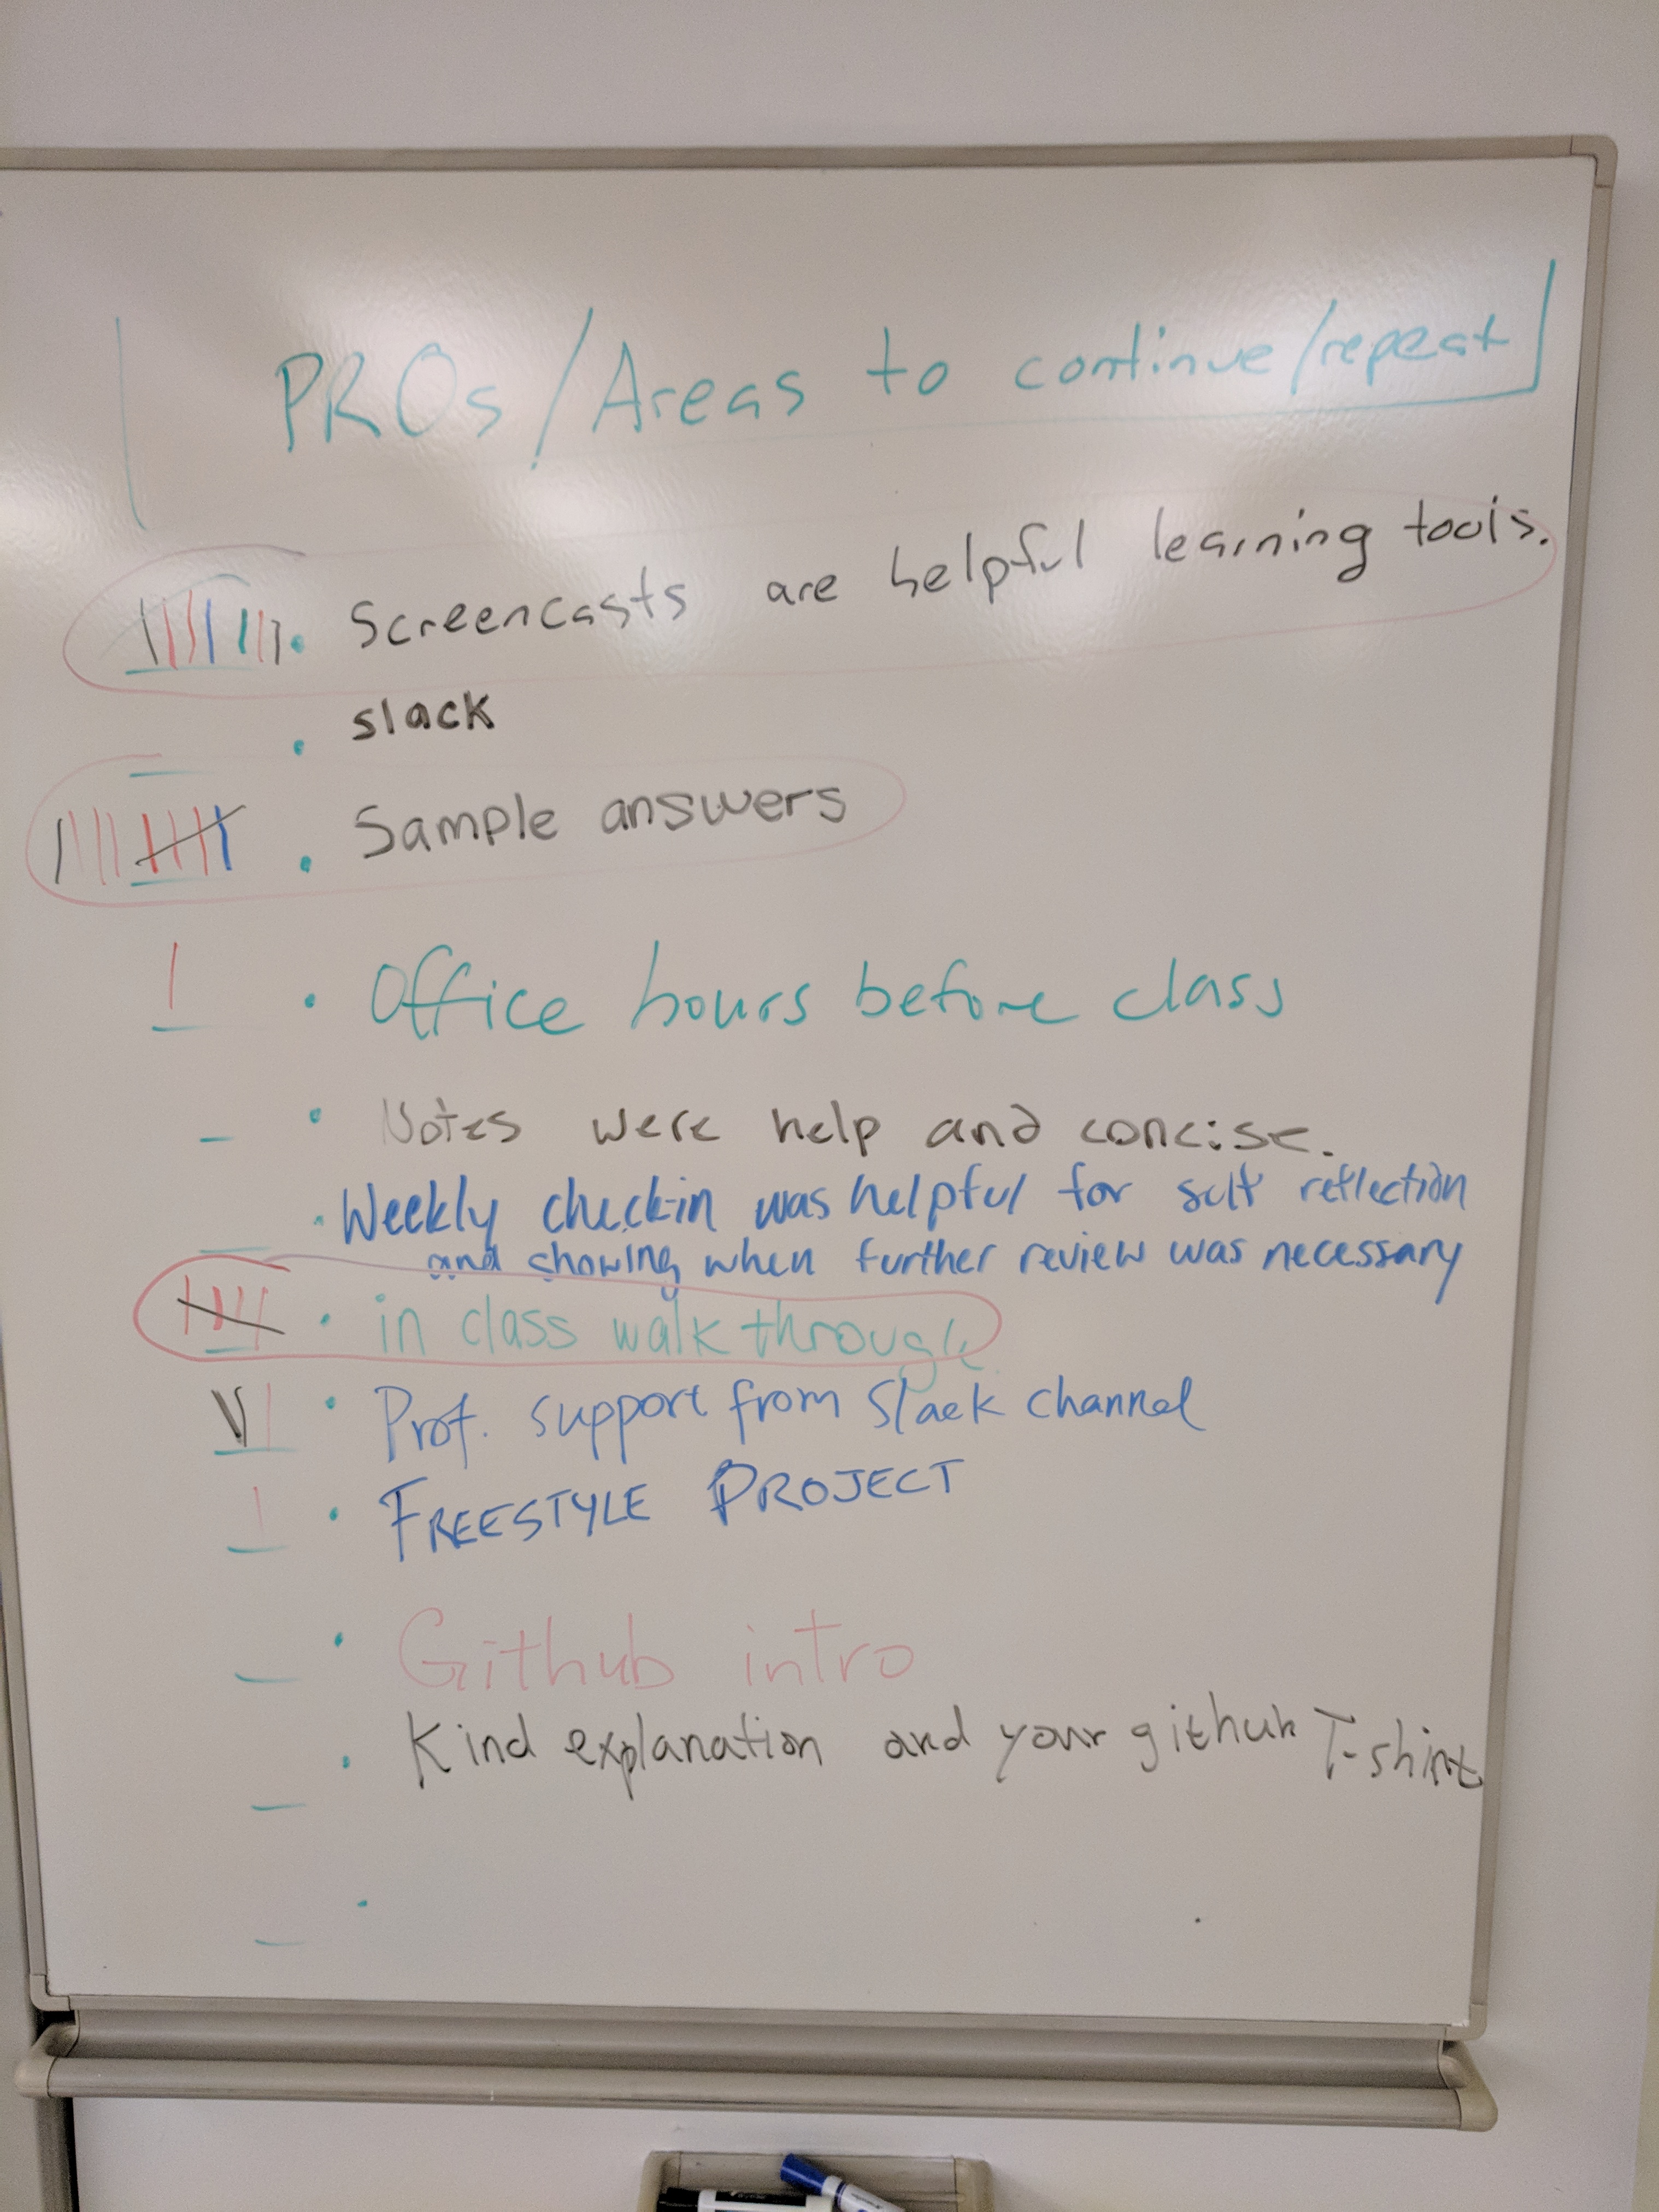 PROs/Areas to continue/repeat
• Screencasts are helpful learning tools.
• slack
• Sample answers
• Office hours before class
• Notes were help and concise.
• Weekly check-in was helpful for self reflection
and showing when further review was necessary
• in class walk through
• Prof. support from Slack channel
• FREESTYLE PROJECT
• Github intro
• Kind explanation and your github T-shirt